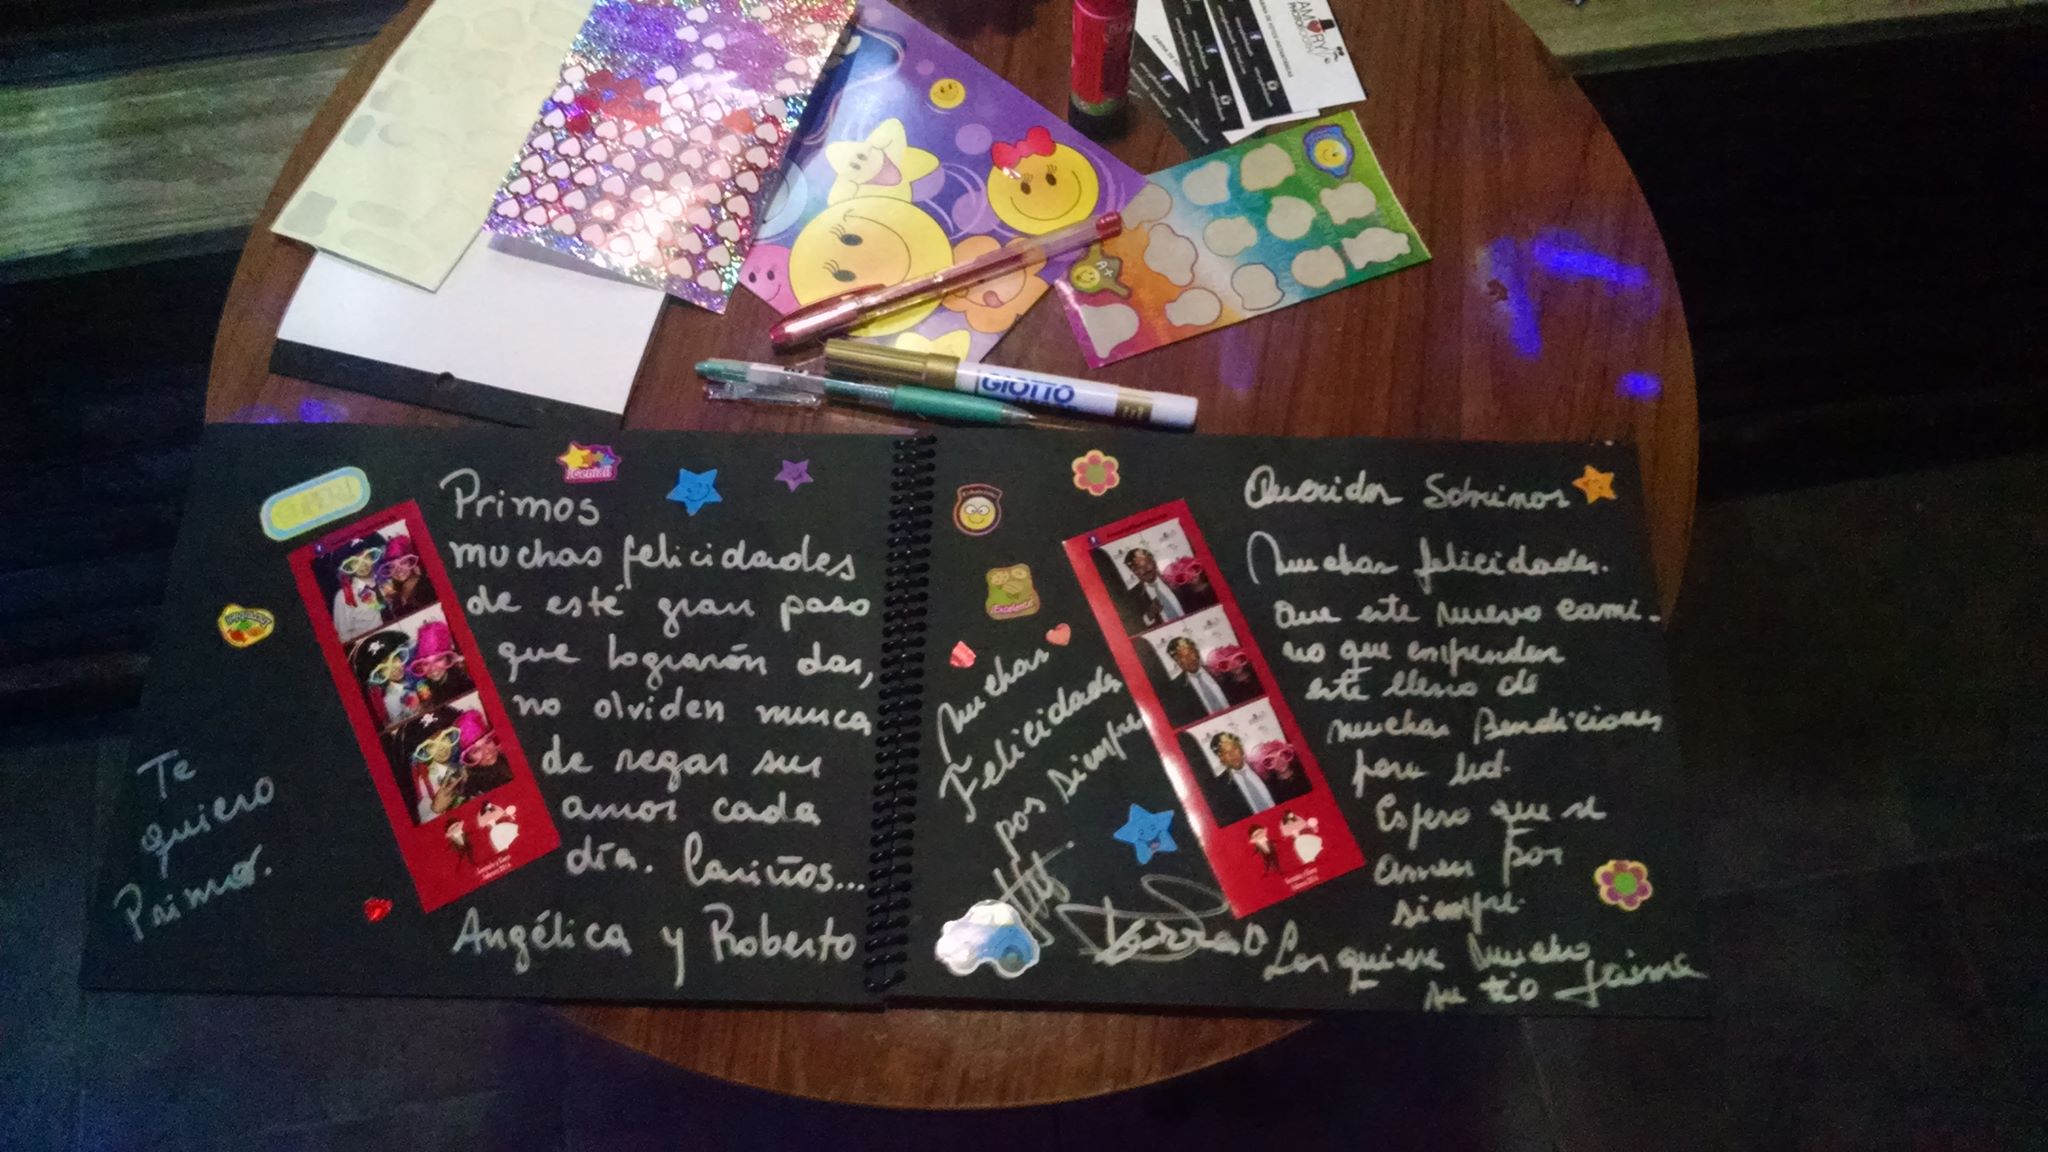 AMORY
PHOTOBOOTH
A+
GIOTTO
¡Genial!
Primos
muchas felicidades
de esté gran paso
que lograrón dar,
no olviden nunca
de regar sus
amor cada
día. Cariños...
Angélica y Roberto
Te
quiero
Primor.
¡Excelente!
Muchas
Felicidades
por siempre
Queridos Sobrinos
Muchas felicidades.
Que este nuevo cami-
no que emprenden
este lleno de
muchas Bendiciones
para uds.
Espero que se
amen por
siempre.
Los quiere mucho
su tio Jaime